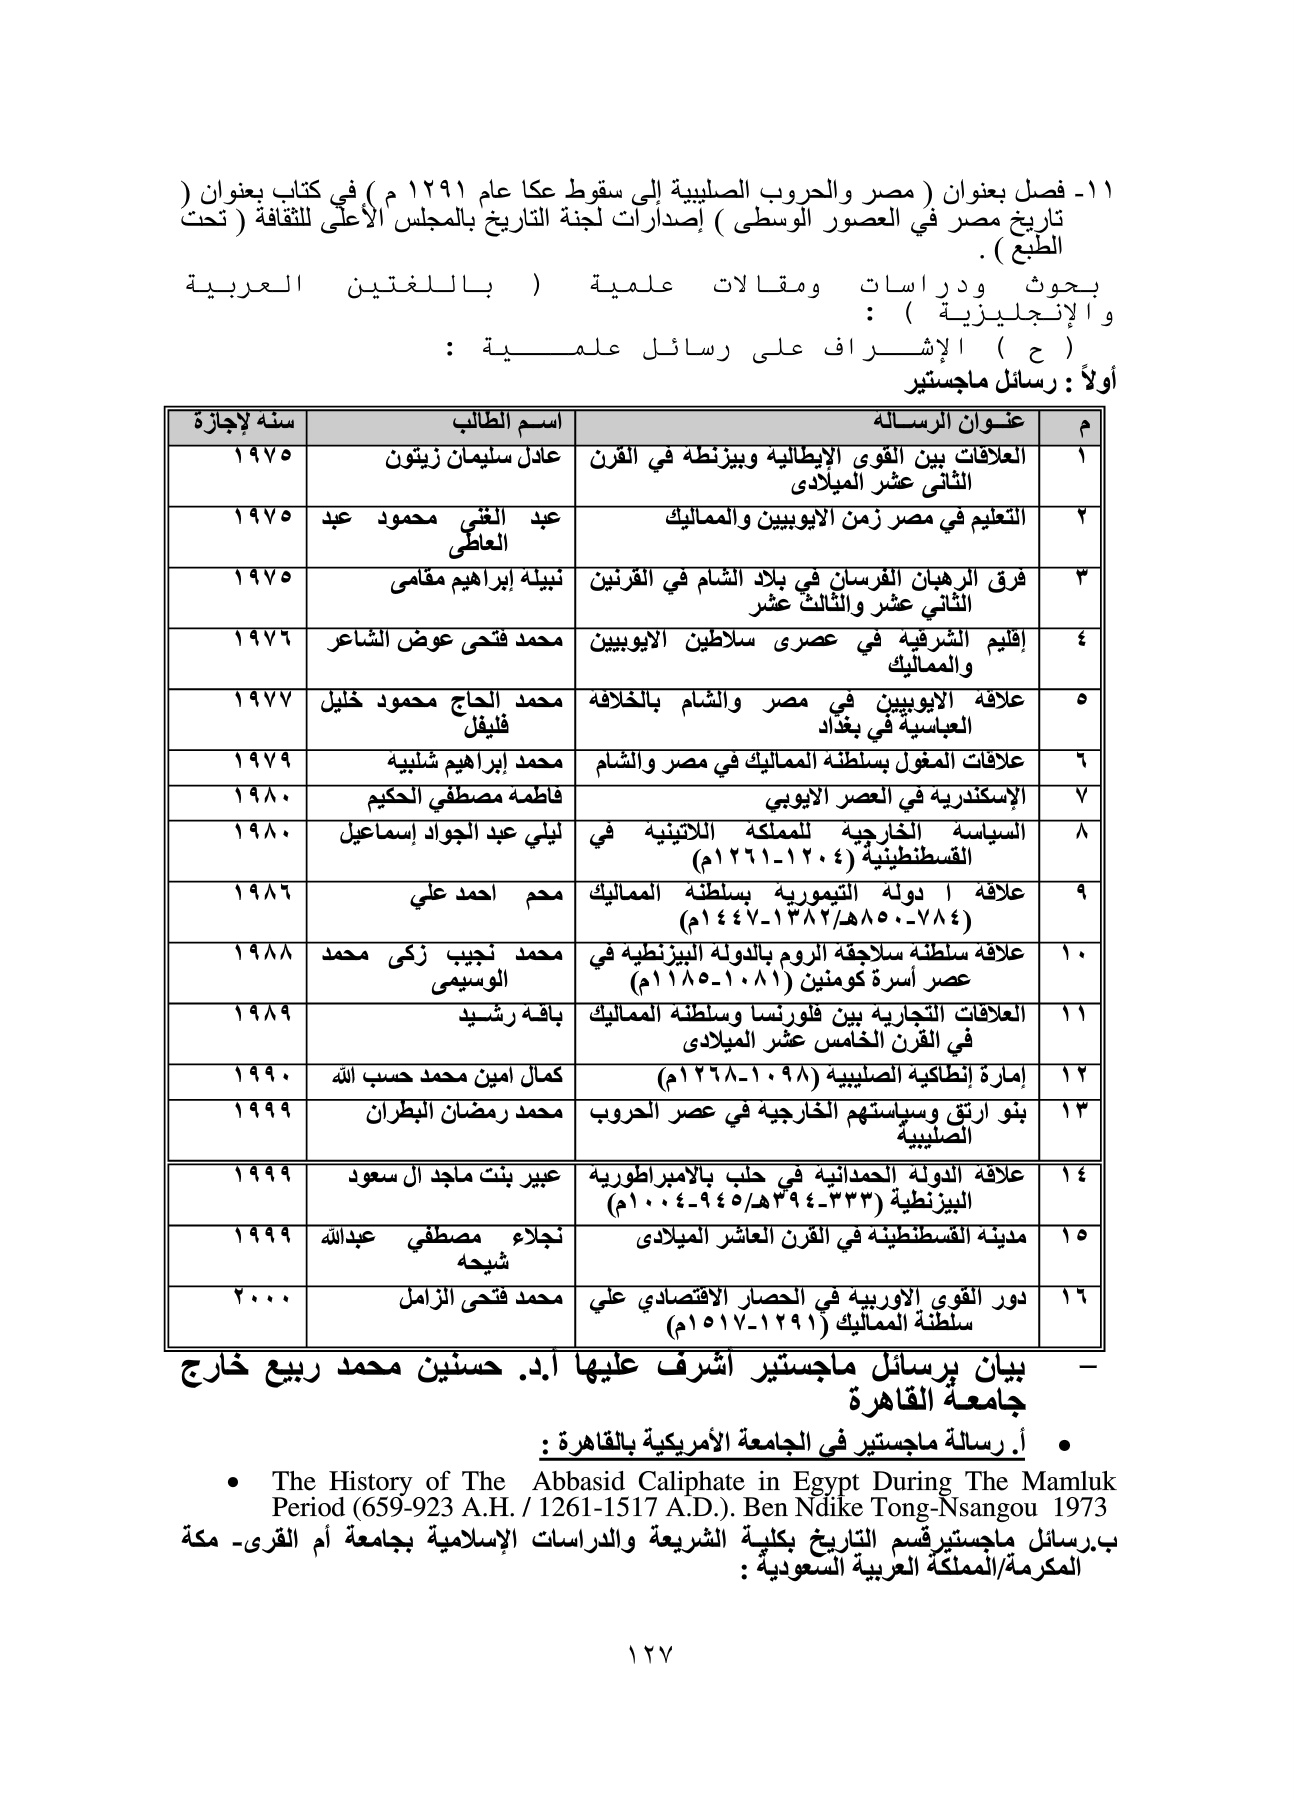 ١١- فصل بعنوان ( مصر والحروب الصليبية إلى سقوط عكا عام ١٢٩١ م ) في كتاب بعنوان (
تاريخ مصر في العصور الوسطى ) إصدارات لجنة التاريخ بالمجلس الأعلى للثقافة ( تحت
الطبع ) .
بحوث ودراسات ومقالات علمية ( باللغتين العربية
والإنجليزية ) :
( ح ) الإشراف على رسائل علمية :
أولاً : رسائل ماجستير
م عنوان الرسالة اسم الطالب سنة لإجازة
١ العلاقات بين القوى الإيطالية وبيزنطة في القرن عادل سليمان زيتون ١٩٧٥
الثانى عشر الميلادى
٢ التعليم في مصر زمن الايوبيين والمماليك عبد الغنى محمود عبد ١٩٧٥
العاطى
٣ فرق الرهبان الفرسان في بلاد الشام في القرنين نبيلة إبراهيم مقامى ١٩٧٥
الثاني عشر والثالث عشر
٤ إقليم الشرقية في عصرى سلاطين الايوبيين محمد فتحى عوض الشاعر ١٩٧٦
والمماليك
٥ علاقة الايوبيين في مصر والشام بالخلافة محمد الحاج محمود خليل ١٩٧٧
العباسية في بغداد فليفل
٦ علاقات المغول بسلطنة المماليك في مصر والشام محمد إبراهيم شلبية ١٩٧٩
٧ الإسكندرية في العصر الايوبي فاطمة مصطفي الحكيم ١٩٨٠
٨ السياسة الخارجية للمملكة اللاتينية في ليلي عبد الجواد إسماعيل ١٩٨٠
القسطنطينية (١٢٠٤-١٢٦١م)
٩ علاقة ا دولة التيمورية بسلطنة المماليك محم احمد علي ١٩٨٦
(٧٨٤-٨٥٠هـ/١٣٨٢-١٤٤٧م)
١٠ علاقة سلطنة سلاجقة الروم بالدولة البيزنطية في محمد نجيب زكى محمد ١٩٨٨
عصر أسرة كومنين (١٠٨١-١١٨٥م) الوسيمى
١١ العلاقات التجارية بين فلورنسا وسلطنة المماليك باقة رشيد ١٩٨٩
في القرن الخامس عشر الميلادى
١٢ إمارة إنطاكية الصليبية (١٠٩٨-١٢٦٨م) كمال امين محمد حسب الله ١٩٩٠
١٣ بنو ارتق وسياستهم الخارجية في عصر الحروب محمد رمضان البطران ١٩٩٩
الصليبية
١٤ علاقة الدولة الحمدانية في حلب بالامبراطورية عبير بنت ماجد ال سعود ١٩٩٩
البيزنطية (٣٣٣-٣٩٤هـ/٩٤٥-١٠٠٤م)
١٥ مدينة القسطنطينة في القرن العاشر الميلادى نجلاء مصطفي عبدالله ١٩٩٩
شيحه
١٦ دور القوى الاوربية في الحصار الاقتصادي علي محمد فتحى الزامل ٢٠٠٠
سلطنة المماليك (١٢٩١-١٥١٧م)
– بيان برسائل ماجستير أشرف عليها أ.د. حسنين محمد ربيع خارج
جامعة القاهرة
• أ. رسالة ماجستير في الجامعة الأمريكية بالقاهرة :
• The History of The Abbasid Caliphate in Egypt During The Mamluk
Period (659-923 A.H. / 1261-1517 A.D.). Ben Ndike Tong-Nsangou 1973
ب.رسائل ماجستيرقسم التاريخ بكلية الشريعة والدراسات الإسلامية بجامعة أم القرى- مكة
المكرمة/المملكة العربية السعودية :
١٢٧